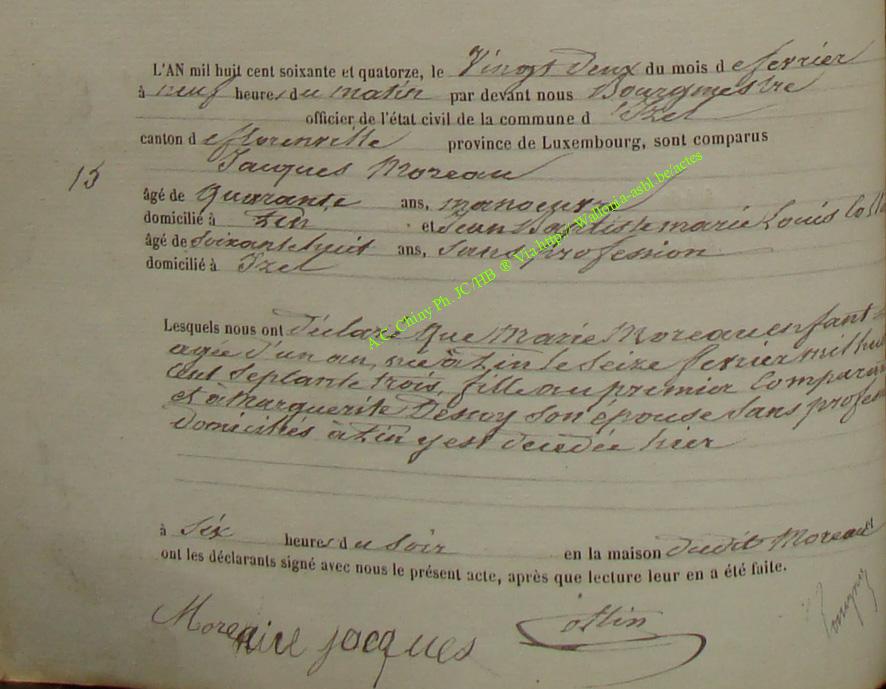 L'AN mil huit cent soixante et quatorze, le Vingt deux du mois de fevrier
à neuf heures du matin par devant nous Bourgmestre
officier de l'état civil de la commune d Izel
canton de florenville province de Luxembourg, sont comparus
Jacques Moreau
15
âgé de Quarante ans, manoeuvre
domicilié à et Jean Baptiste marie Louis
âgé de Soixante huit ans, Sans profession
domicilié à Izel
Lesquels nous ont déclaré Que Marie Moreau enfant
agée d'un an, née à le Seize fevrier mil huit
Cent Septante trois, fille au premier Comparant
et à Marguerite son épouse Sans
Domiciliés à y est décédée hier
à Six heures du Soir en la maison dudit Moreau et
ont les déclarants signé avec nous le présent acte, après que lecture leur en a été faite.
Moreaux jacques
A.C. Chiny Ph. JC/HB ® Via http://Wallonia-asbl.be/actes